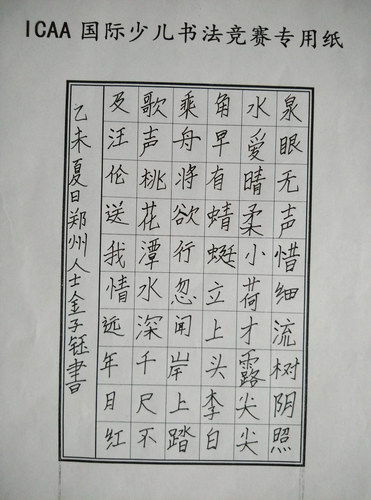 ICAA国际少儿书法竞赛专用纸
泉眼无声惜细流树阴照
水爱晴柔小荷才露尖尖
角早有蜻蜓立上头李白
乘舟将欲行忽闻岸上踏
歌声桃花潭水深千尺不
及汪伦送我情远年月红
乙未夏日郑州人士金子钰書